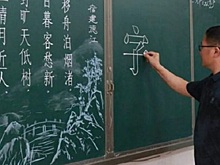 字
宿建德江
移舟泊烟渚
日暮客愁新
旷天低树
清月近人